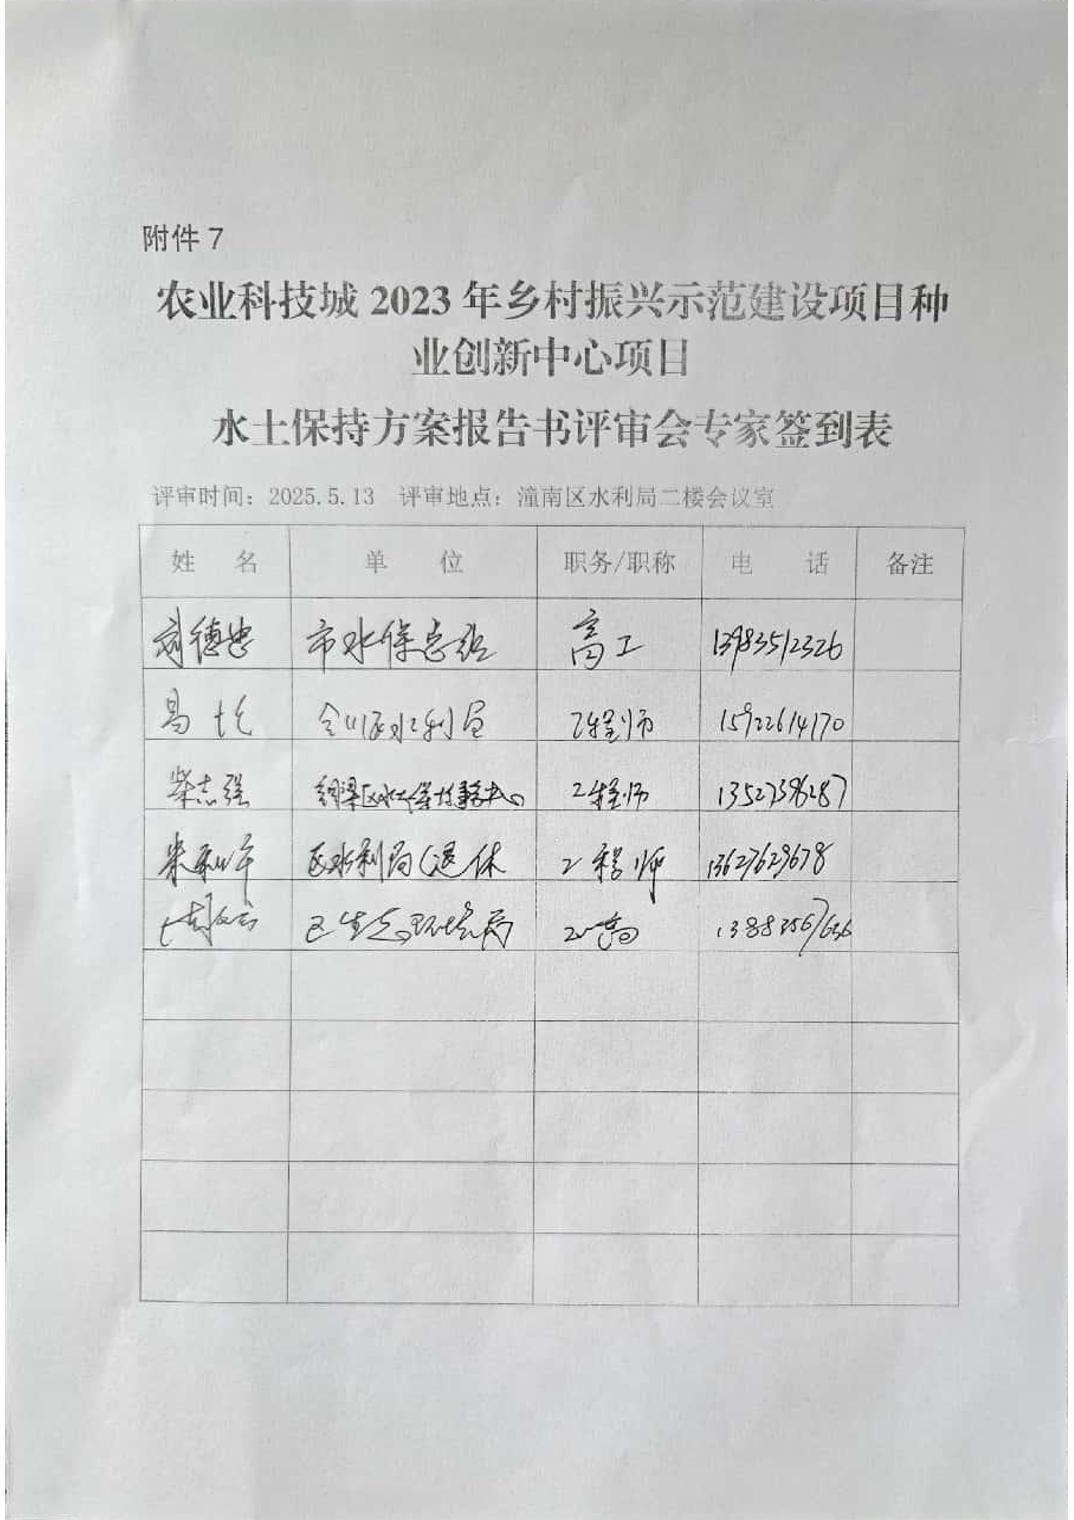 附件7
农业科技城2023年乡村振兴示范建设项目种
业创新中心项目
水土保持方案报告书评审会专家签到表
评审时间：2025.5.13 评审地点：潼南区水利局二楼会议室
姓 名 单 位 职务/职称 电 话 备注
刘德忠 市水保总站 高工 13983512326
易 合川区水利局 工程师 15922614170
柴志强 铜梁区水土保持事务中心 工程师 13527396287
米 区水利局(退休 工程师 13627629678
区生态环境局